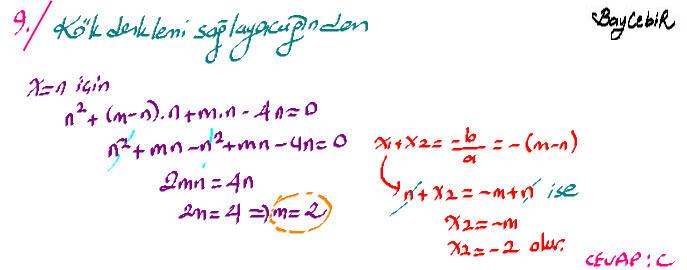 9./ Kök denklemi sağlayacağından
BayCebiR
x=n için
n²+(m-n).n+m.n-4n=0
n²+mn-n²+mn-4n=0
2mn=4n
2n=4 ⇒ m=2
x₁+x₂= -b/a = -(m-n)
n+x₂=-m+n ise
x₂=-m
x₂=-2 olur.
CEVAP: C